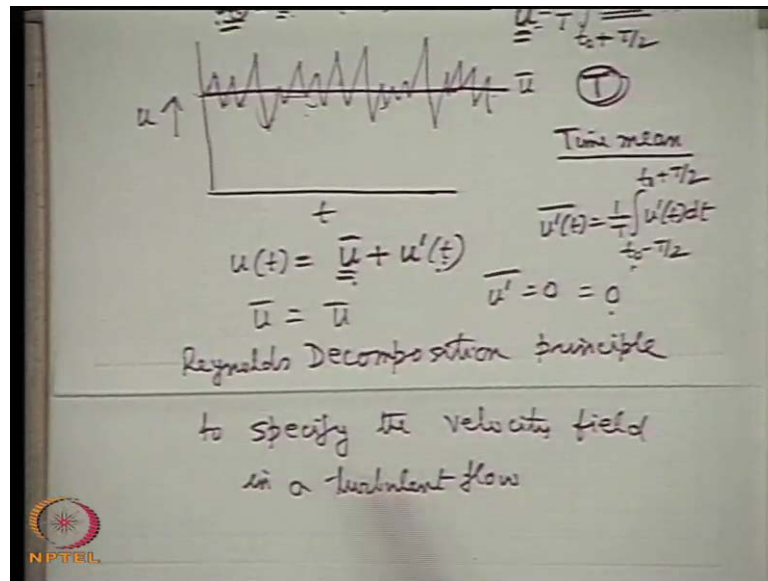 ū = 1/T ∫
t₀ + T/2
u ↑
ū
T
t
Time mean
u(t) = ū + u'(t)
t₀ + T/2
u'(t)̅ = 1/T ∫ u'(t) dt
t₀ - T/2
ū = ū
u'̅ = 0 = 0
Reynolds Decomposition principle
to specify the velocity field
in a turbulent flow
NPTEL